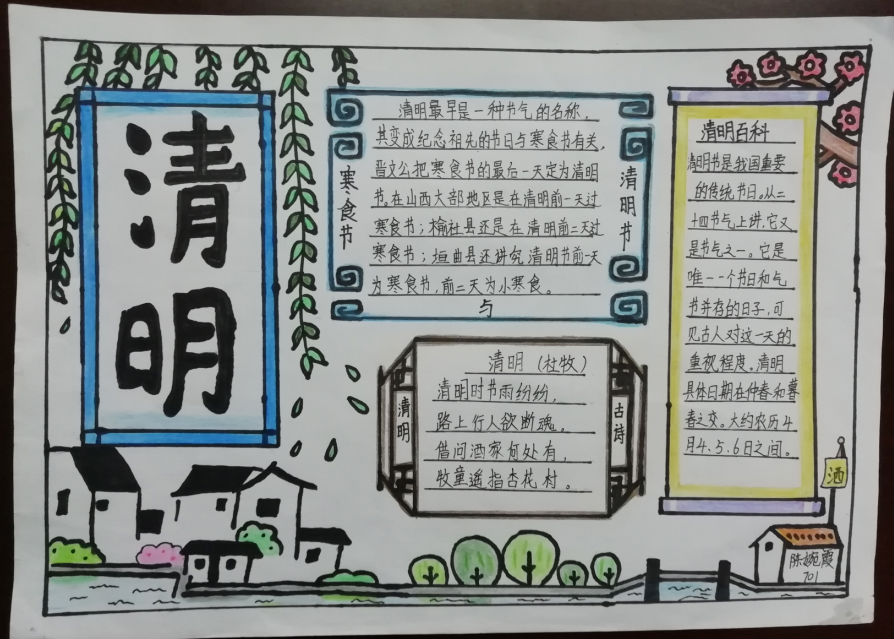 清明
清明最早是一种节气的名称，
其变成纪念祖先的节日与寒食节有关，
晋文公把寒食节的最后一天定为清明
节。在山西大部地区是在清明前一天过
寒食节；榆社县还是在清明前二天过
寒食节；垣曲县还讲究清明节前一天
为寒食节，前二天为小寒食。
寒食节
与
清明节
清明（杜牧）
清明时节雨纷纷，
路上行人欲断魂。
借问酒家何处有，
牧童遥指杏花村。
清明
古诗
清明百科
清明节是我国重要
的传统节日。从二
十四节气上讲，它又
是节气之一。它是
唯一一个节日和气
节并存的日子，可
见古人对这一天的
重视程度。清明
具体日期在仲春和暮
春之交。大约农历4
月4、5、6日之间。
酒
陈婉霞
701